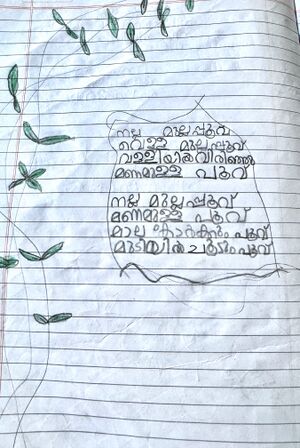 നല്ല മുല്ലപ്പൂവ്
വെള്ള മുല്ലപ്പൂവ്
വള്ളിയിൽ വിരിഞ്ഞ
മണമുള്ള പൂവ്
നല്ല മുല്ലപ്പൂവ്
മണമുള്ള പൂവ്
മാല കോർക്കും പൂവ്
മുടിയിൽ ചൂടും പൂവ്